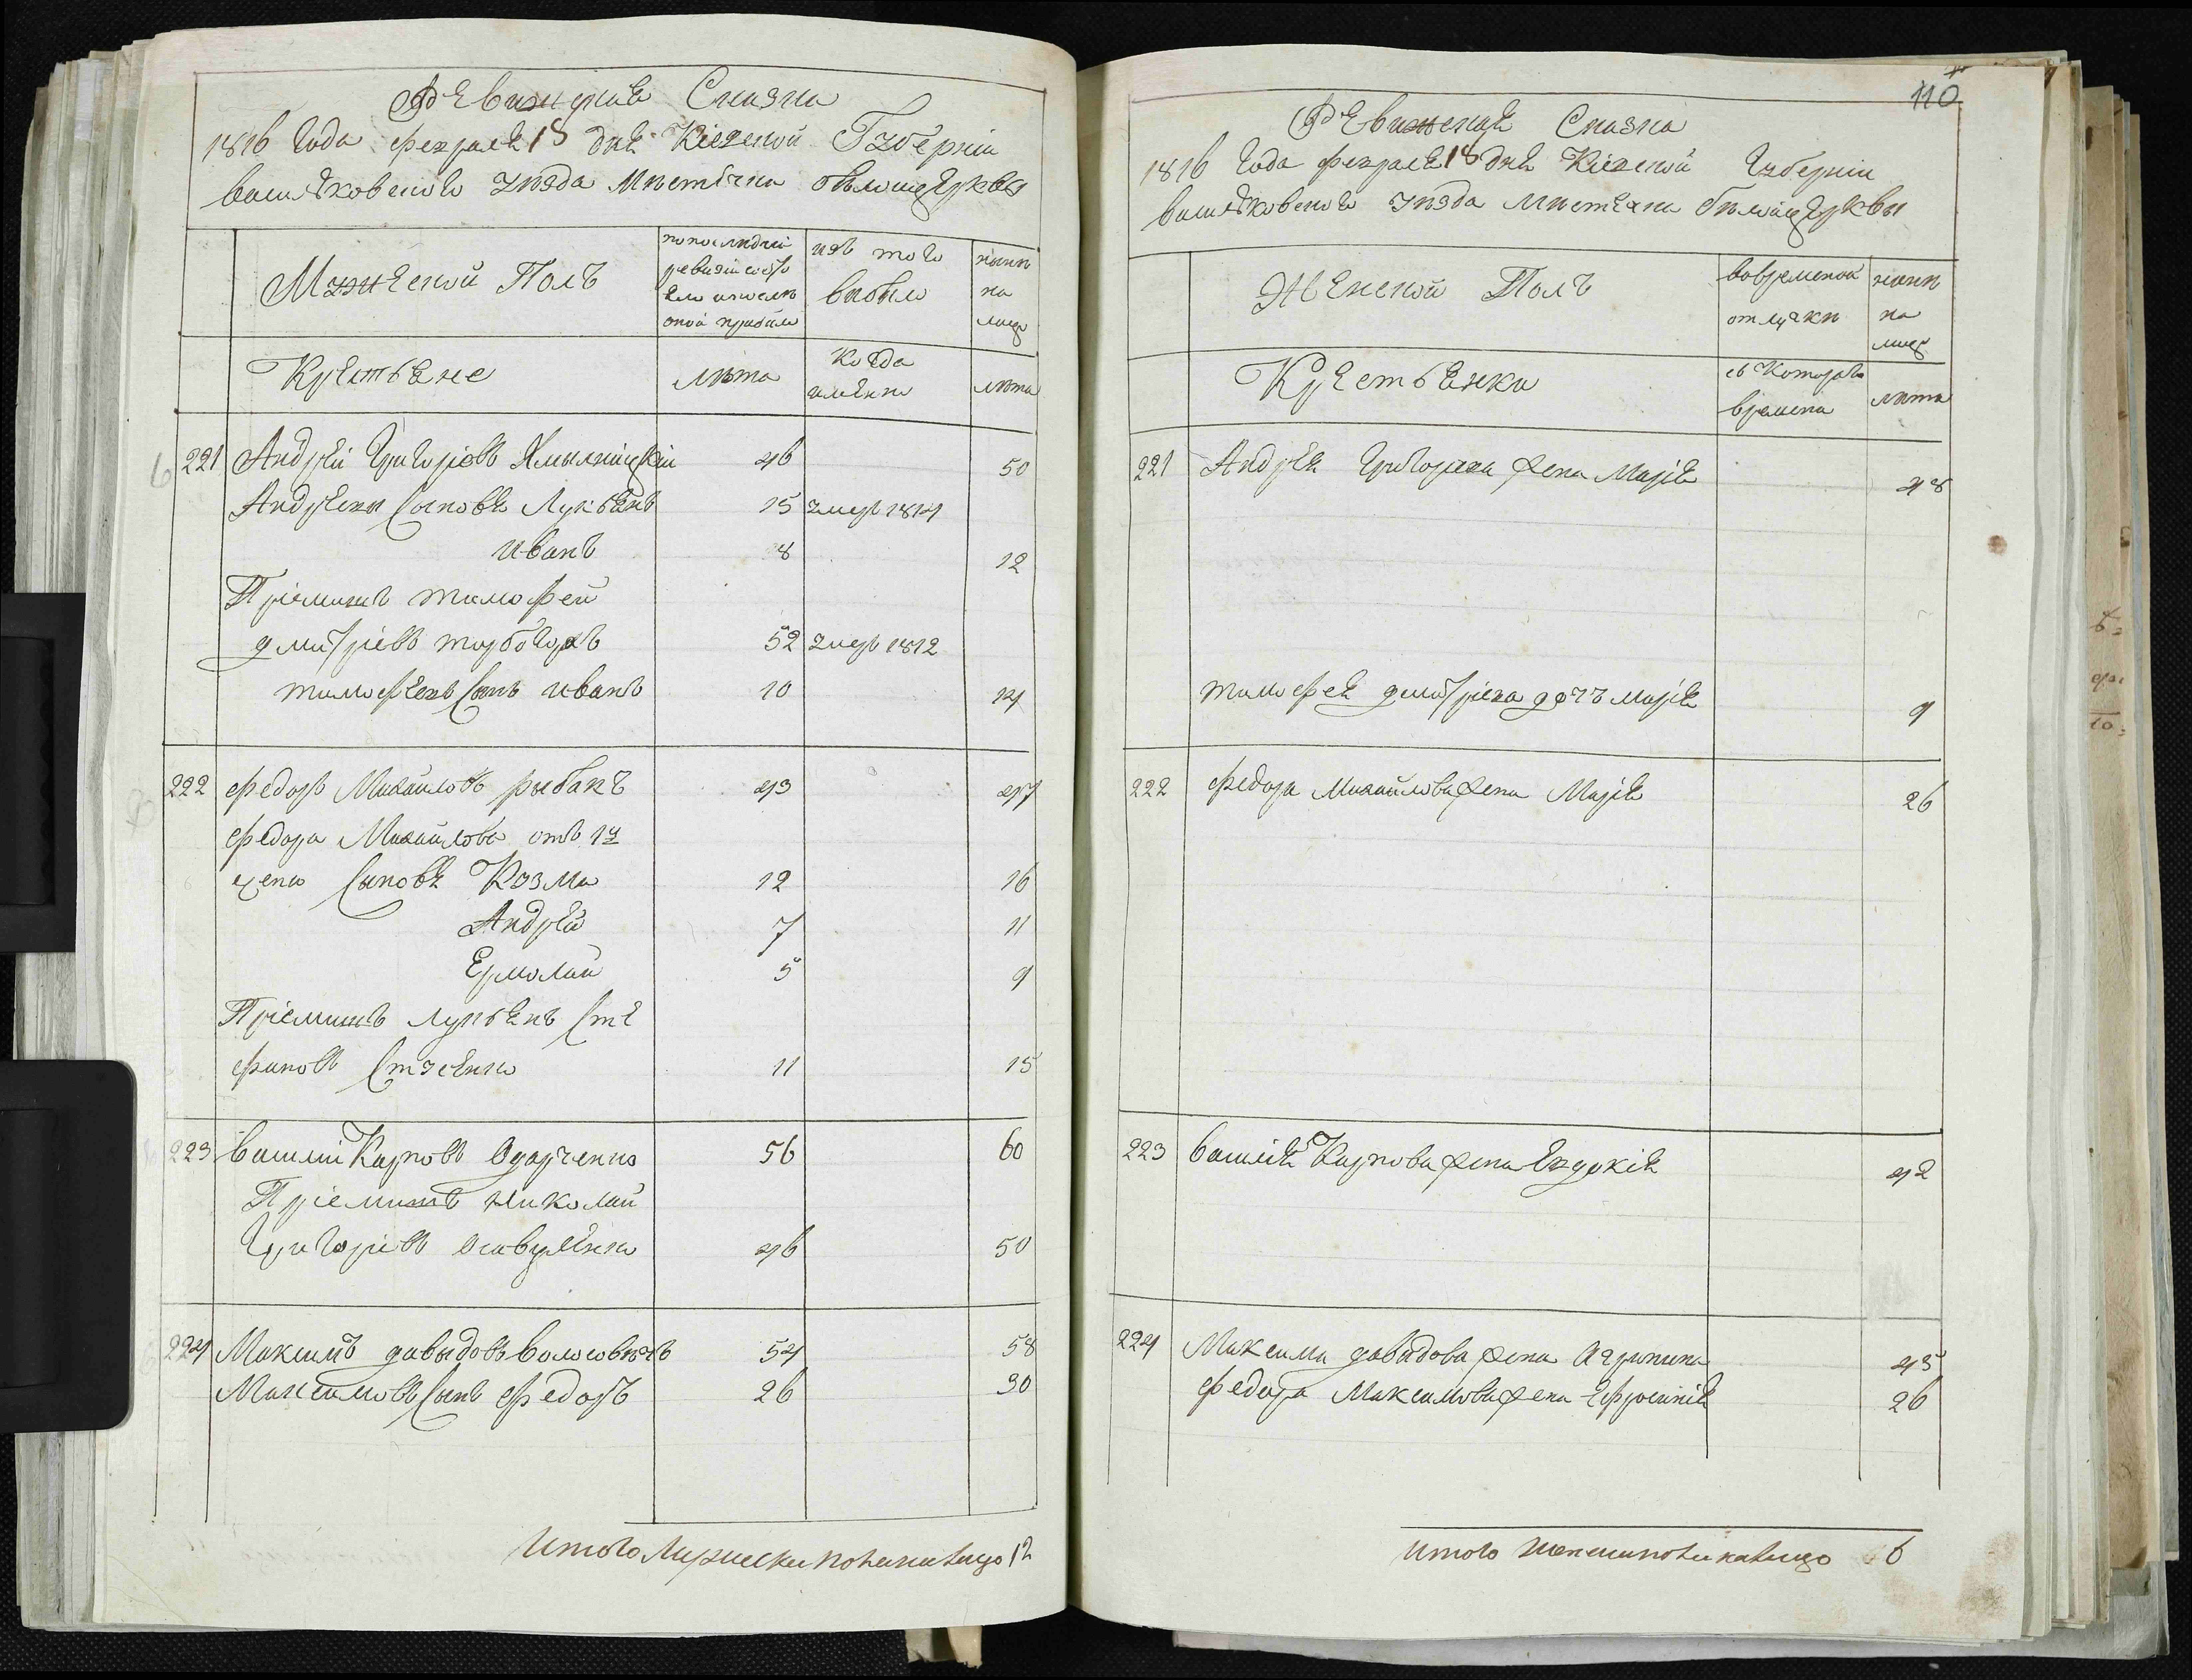 Ревижская Сказка
1816 года февраля 18 дня Кіевской Губерніи
васильковского уезда Местечка белоицеркви
Мужеской Полъ
попоследней ревизіи состояло ипосле оной прибыло
изъ того выбыло
ныне на лицо
Крестьяне
лета
Когда именно
лета
221 Андрей Григоріевъ Хмелницкій 46 50
Андреевы Сыновья Лукьянъ 15 умеръ 1814
иванъ 8 12
Пріемишъ тимофей
дмитріевъ 52 умеръ 1812
тимофеевъ Сынъ иванъ 10 14
222 федоръ Михайловъ рыбакъ 43 47
федора Михайлова отъ 1й
жены Сыновья Козма 12 16
Андрей 7 11
Ермолай 5 9
Пріемишъ лукьянъ Сте
фановъ 11 15
223 василій Карповъ Одарченко 56 60
Пріемишъ Николай
Григоріевъ 46 50
224 Максимъ давыдовъ 54 58
Максимовъ Сынъ федоръ 26 30
Итого Мужеска пола налицо 12
110
Ревижская Сказка
1816 года февраля 18 дня Кіевской Губерніи
васильковского уезда местечка белоицеркви
Женской Полъ
вовременной отлучки
ныне на лице
Крестьянки
съ Которого времени
лета
221 Андрея Григорієва жена Марія 48
тимофея дмитріева дочъ марія 9
222 федора Михайлова жена Марія 26
223 василія Карпова жена Евдокія 42
224 Максима давыдова жена Агрипина 45
федора Максимова жена Ефросинія 26
Итого женска пола налицо 6